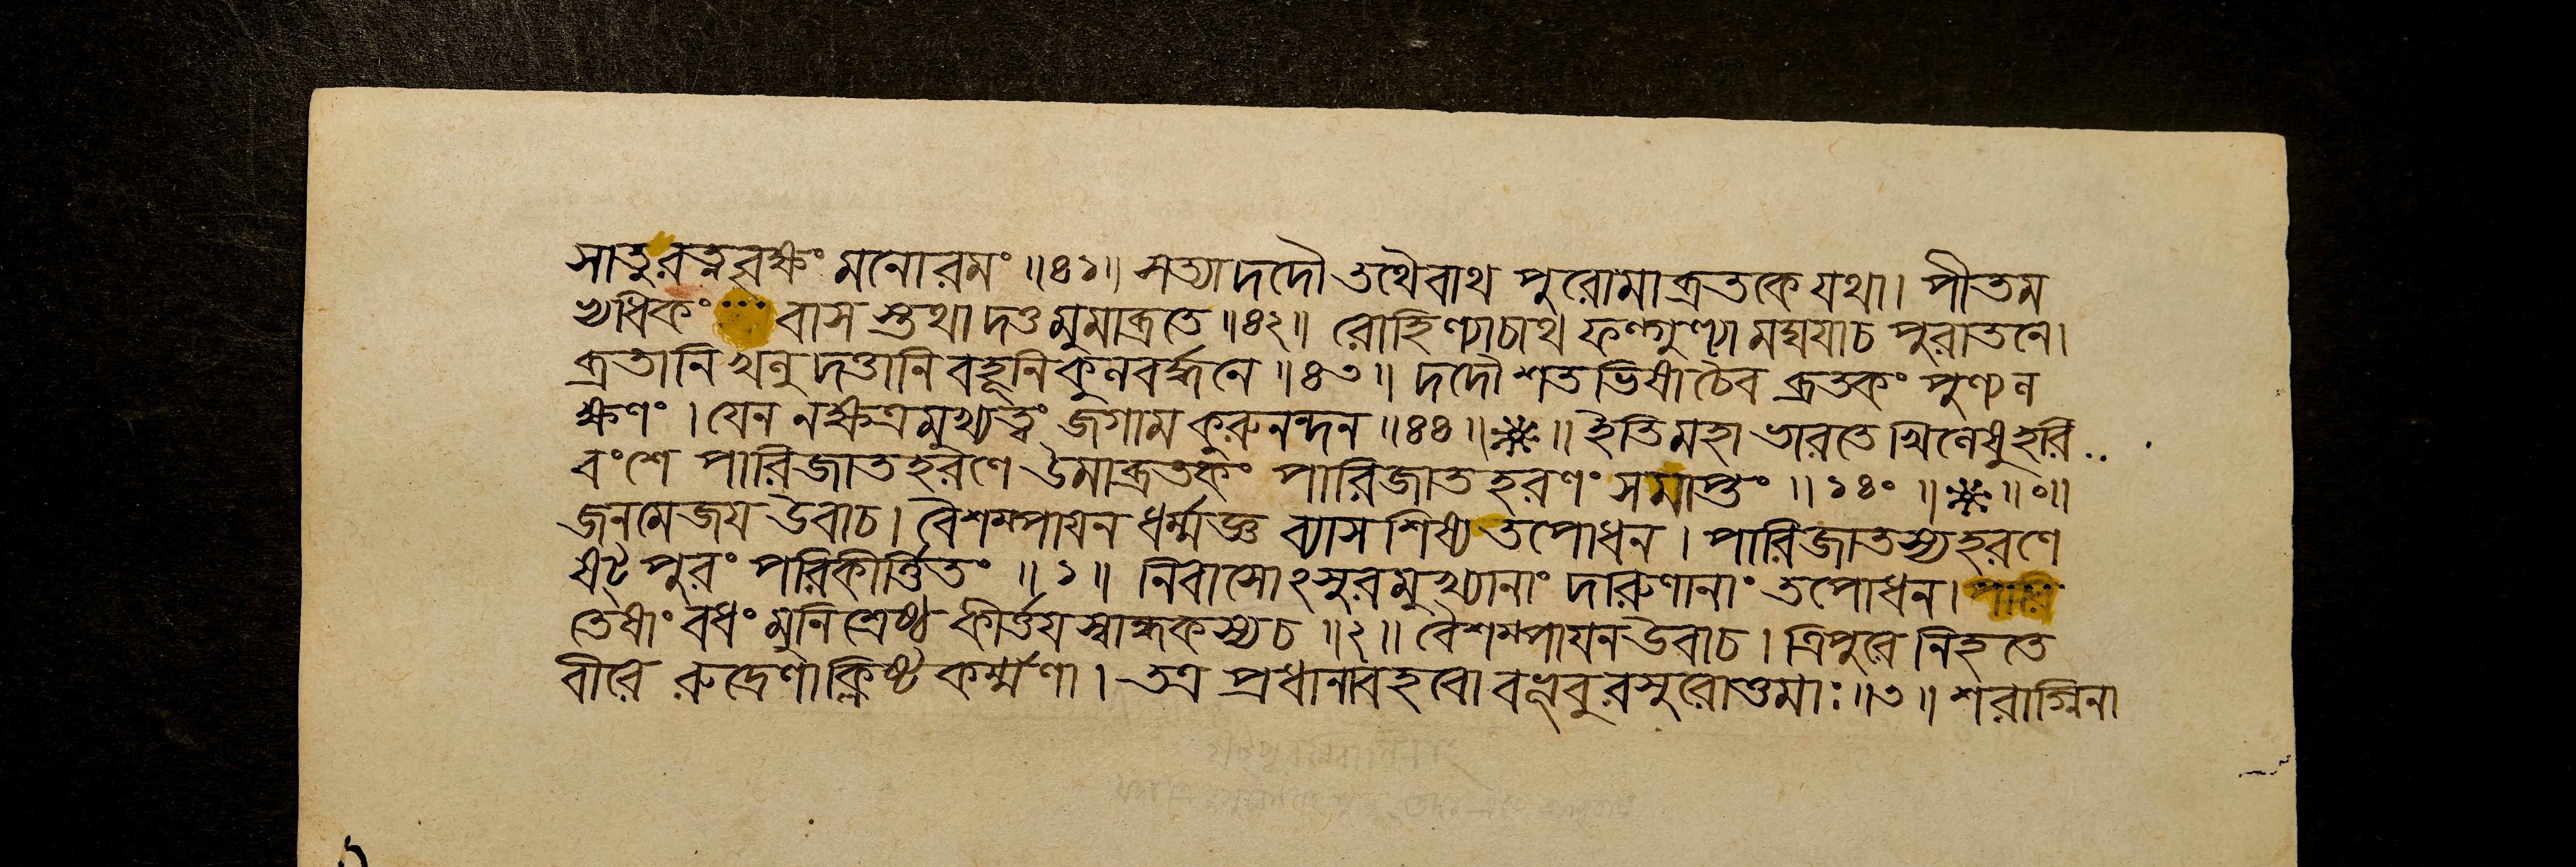 সাতুরত্নবৃক্ষং মনোরমং ॥৪১॥ সত্যাদদৌ তথৈবাথ পুরোমাব্রতকে যথা। পীতম
প্যধিকং বাস স্তথা দত্তমুমাব্রতে ॥৪২॥ রোহিণ্যাচাথ ফল্গুণ্যা মঘযাচ পুরাতনে।
ব্রতানি খলু দত্তানি বহূনি কুলবর্দ্ধনে ॥৪৩॥ দদৌ শতভিষাচৈব ব্রতকং পুণ্যল
ক্ষণং । যেন নক্ষত্রমুখ্যত্বং জগাম কুরুনন্দন ॥৪৪॥ ॥ ইতি মহাভারতে খিলেষু হরি
বংশে পারিজাতহরণে উমাব্রতকং পারিজাতহরণং সমাপ্তং ॥ ১৪০ ॥ ॥০॥
জনমেজয উবাচ। বৈশম্পাযন ধর্ম্মজ্ঞ ব্যাসশিষ্য তপোধন । পারিজাতস্য হরণে
ষট্ পুরং পরিকীর্ত্তিতং ॥ ১॥ নিবাসোঽসুরমুখ্যানাং দারুণানাং তপোধন।
তেষাং বধং মুনিশ্রেষ্ঠ কীর্ত্তযস্বান্ধকস্য চ ॥২॥ বৈশম্পাযন উবাচ । ত্রিপুরে নিহতে
বীরে রুদ্রেণাক্লিষ্টকর্ম্মণা । তত্র প্রধানাবহবো বভূবুরসুরোত্তমাঃ ॥৩॥ শরাগ্নিনা